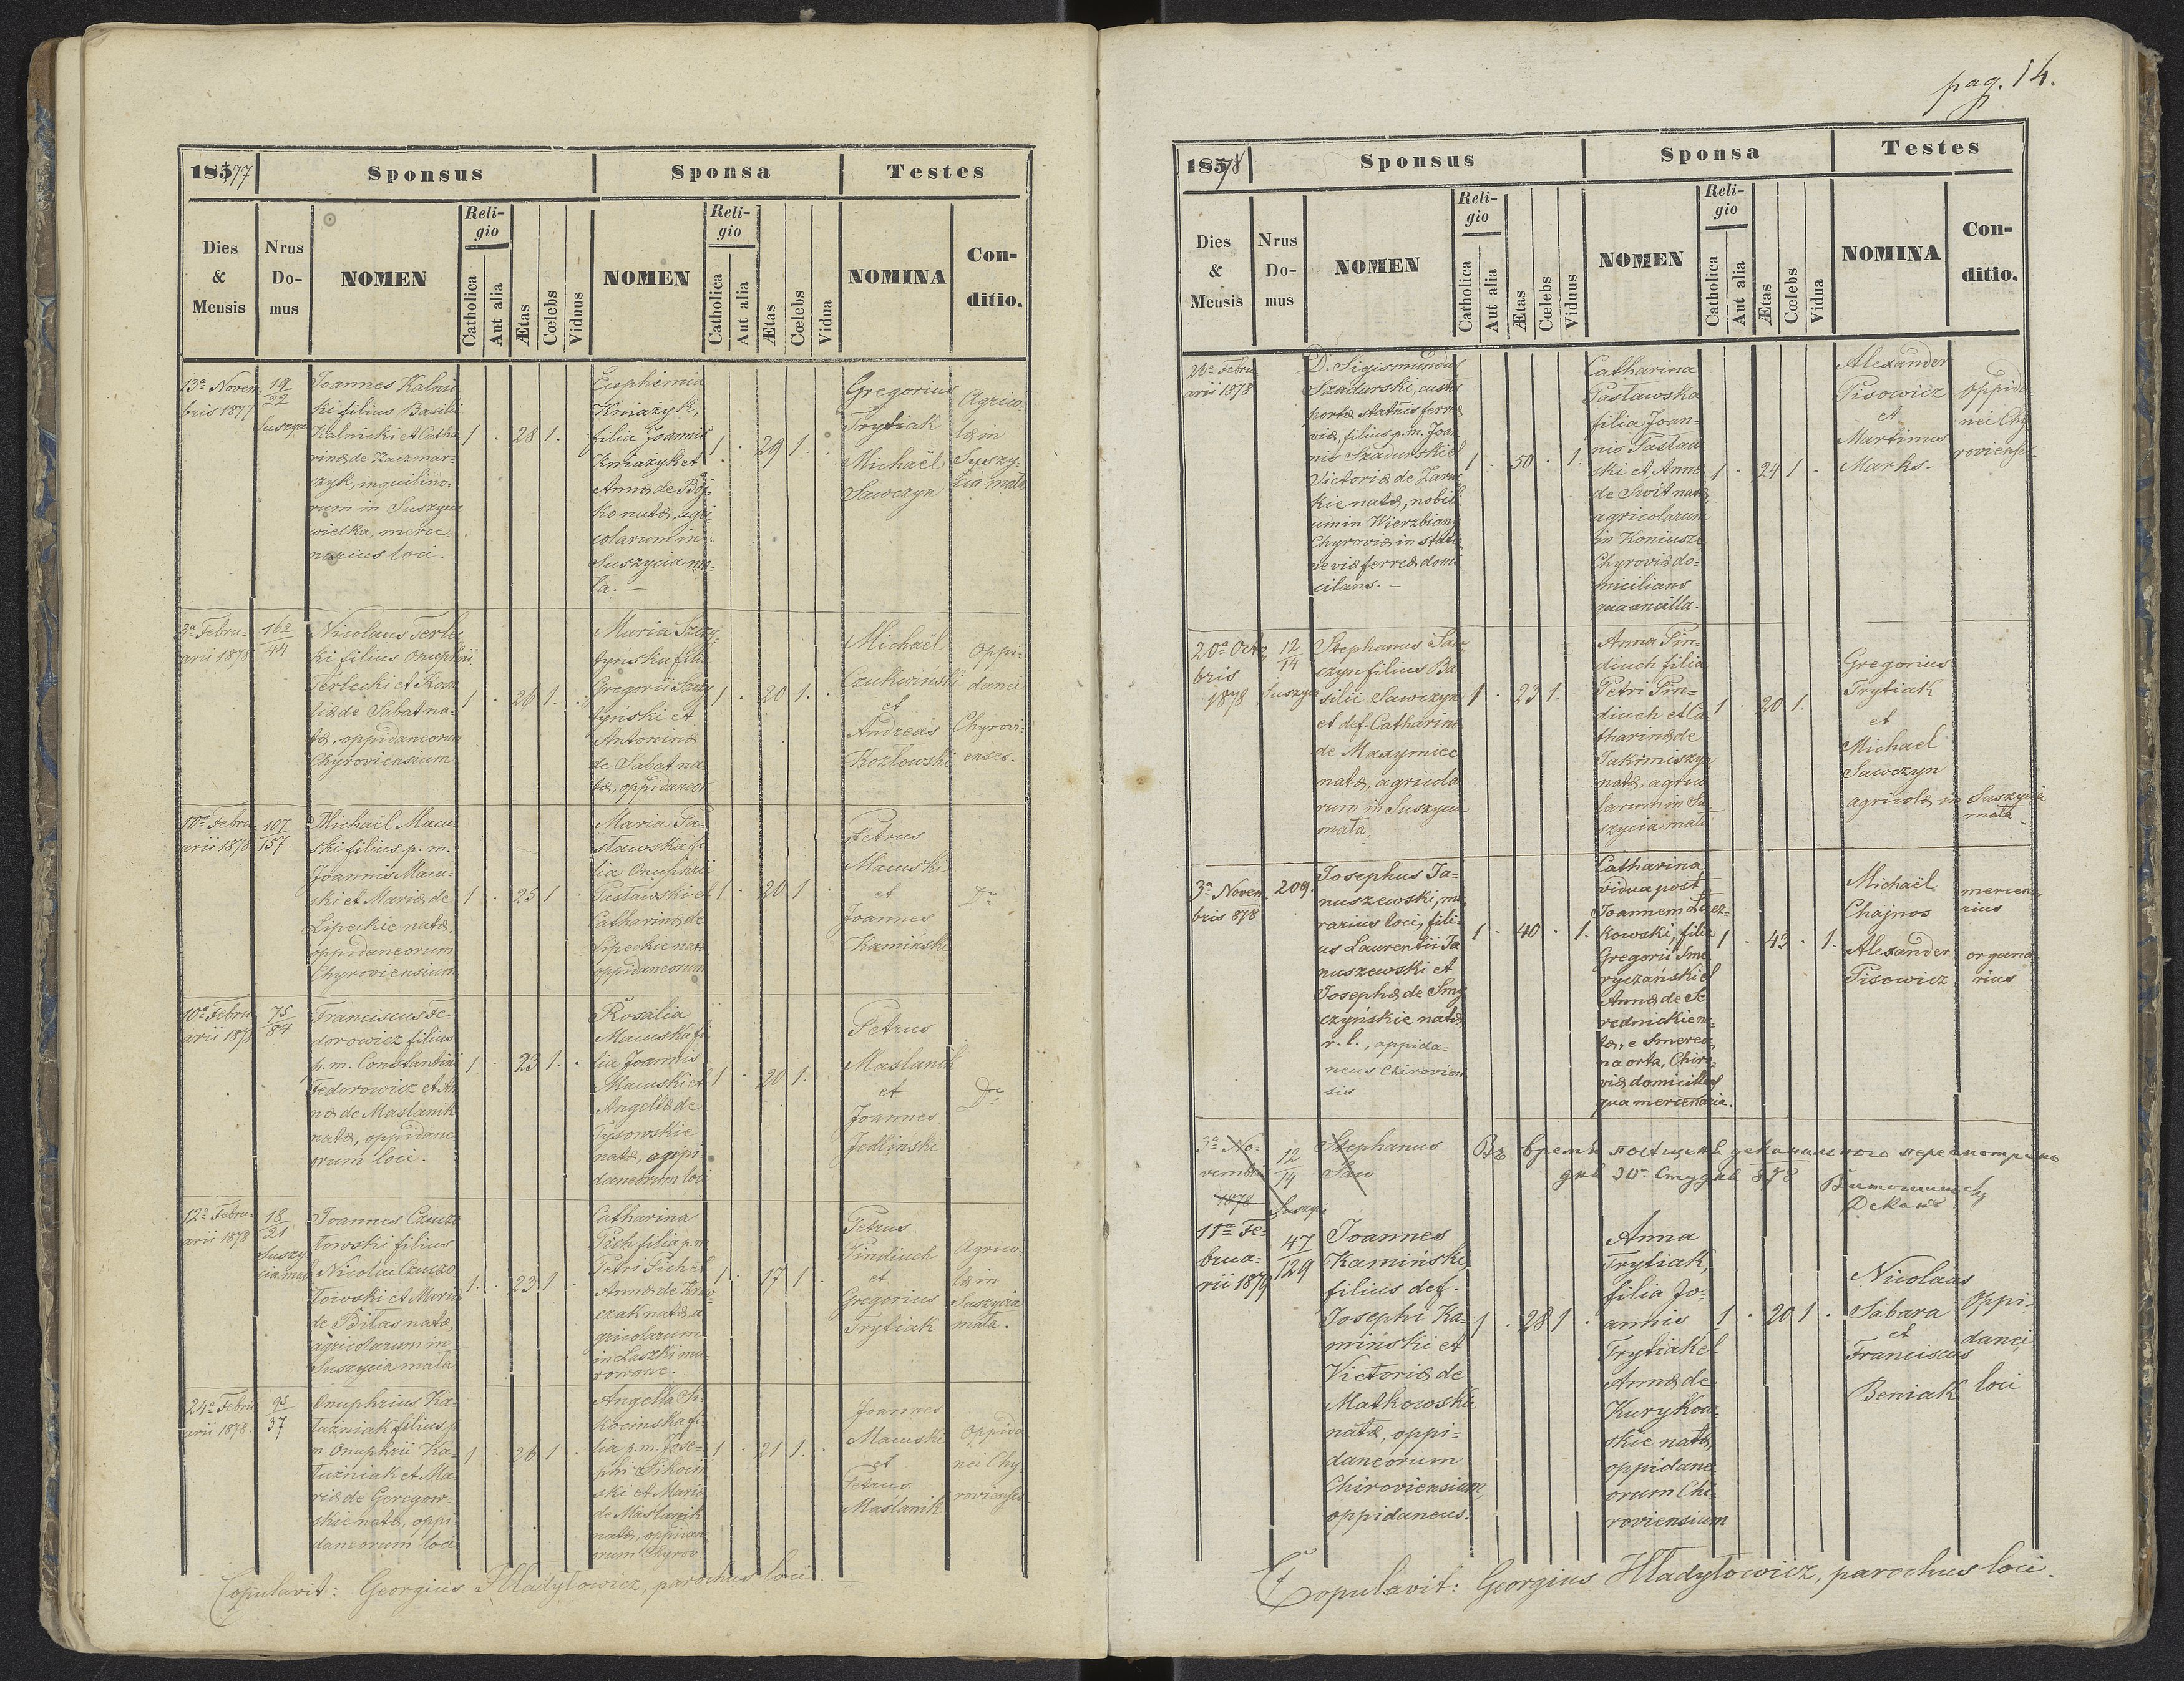 pag. 14.
1877
Sponsus
Sponsa
Testes
Dies & Mensis
Nrus Domus
NOMEN
Religio
Catholica
Aut alia
Ætas
Cœlebs
Viduus
NOMEN
Religio
Catholica
Aut alia
Ætas
Cœlebs
Vidua
NOMINA
Con-
ditio.
13ª Novem-
bris 1877
19
22
Joannes Kalnic
ki filius Basilii
Kalnicki et Catha
rinæ de Kaczmar-
czyk, inquilino-
rum in Suszyca
wielka, merce-
narius loci.
1 . 28 1 .
Euphemia
Kniażyk,
filia Joannis
Kniażyk et
Annæ de Boj-
ko natæ, agri-
colarum in
Suszycia ma-
la. —
1 . 29 1 .
Gregorius
Trytiak
Michaël
Sawczyn
Agrico-
læ in
Suszy-
cia mala
3ª Febru-
arii 1878
162
44
Nicolaus Terlec
ki filius Onuphrii
Terlecki et Rosa
liæ de Sabat na-
tæ, oppidaneorum
Chyroviensium
1 . 26 1 .
Maria Szczy-
tyńska filia
Gregorii Szczy
tyński et
Antoninæ
de Sabat na
tæ, oppidaneor
1 . 20 1 .
Michaël
Czukwiński
et
Andreas
Kozłowski
Oppi-
danei
Chyrovi-
enses.
10ª Febru
arii 1878
107
157.
Michaël Macu-
ski filius p. m.
Joannis Macu-
ski et Mariæ de
Lipeckie natæ,
oppidaneorum
Chyroviensium
1 . 25 1
Maria Pa-
sławska fi-
lia Onuphrii
Pasławski et
Catharinæ de
Lipeckie natæ
oppidaneorum
1 . 20 1
Petrus
Macuski
et
Joannes
Kamiński
Dº
10ª Febru
arii 1878
75
84
Franciscus Fe-
dorowicz filius
p. m. Constantini
Fedorowicz et An
næ de Maslanik
natæ, oppidane
orum loci.
1 . 23 1 .
Rosalia
Macuska fi
lia Joannis
Macuski et
Angellæ de
Tysowskie
natæ, oppi-
daneorum loci
1 . 20 1.
Petrus
Maslanik
et
Joannes
Jedlinski
Dº
12ª Febru-
arii 1878
18
21
Suszy
cia mala
Joannes Czuczo
łowski filius
Nicolai Czuczo
łowski et Mariæ
de Bilas natæ,
agricolarum in
Suszycia mala
1 . 23 1
Catharina
Pich filia p. m.
Petri Pich et
Annæ de Kraw
czak natæ, a
gricolarum
in Laszki mu-
rowane.
1 . 17 1 .
Petrus
Pindiuch
et
Gregorius
Trytiak
Agrico-
læ in
Suszycia
mala.
24ª Febru
arii 1878.
95
37
Onuphrius Ka-
łużniak filius p
m. Onuphrii Ka-
łużniak et Ma-
riæ de Geregow-
skie natæ, oppi-
daneorum loci
1 . 26 1 .
Angella Si-
kocinska fi-
lia p. m. Jose-
phi Sikocin
ski et Mariæ
de Maslanik
natæ, oppidane
orum Chyrov.
1 . 21 1 .
Joannes
Macuski
et
Petrus
Maślanik
Oppida
nei Chy-
rovienses
Copulavit: Georgius Hładyłowicz, parochus loci.
1878
Sponsus
Sponsa
Testes
Dies & Mensis
Nrus Domus
NOMEN
Religio
Catholica
Aut alia
Ætas
Cœlebs
Viduus
NOMEN
Religio
Catholica
Aut alia
Ætas
Cœlebs
Vidua
NOMINA
Con-
ditio.
arii 1878
D. Sigismundus
Szadurski, custos
portæ stationis ferreæ
viæ, filius p. m. Joan
nis Szadurski et
Victoriæ de Zarec
kie natæ, nobili
um in Wierzbiany
Chyroviæ in stati
one viæ ferreæ domi
cilans. —
1 . 50 . 1.
Catharina
Pasławska
filia Joan-
nis Pasław
ski et Annæ
de Swit natæ
agricolarum
in Koniusze
Chyroviæ do-
micilians
qua ancilla.
1 . 24 1 .
Alexander
Pisowicz
et
Martinus
Marks -
oppida
nei Chy
rovienses
20ª Octo
bris
1878
12
14
Suszyc
Stephanus Saw
czyn filius Ba
silii Sawczyn
et def. Catharinæ
de Maxymiec
natæ, agricola
rum in Suszycia
mala.
1 . 23 1.
Anna Pin-
diuch filia
Petri Pin-
diuch et Ca-
tharinæ de
Jakimiszyn
natæ, agrico
larum in Su-
szycia mala
1 . 20 1.
Gregorius
Trytiak
et
Michael
Sawczyn
agricolæ in Suszycia
mala
3ª Novem
bris 878
209.
Josephus Ja-
nuszewski, mu
rarius loci, fili-
us Laurentii Ja
nuszewski et
Josephæ de Smy
czyńskie natæ,
r. l., oppida-
neus Chirovien
sis
1 . 40 . 1.
Catharina
vidua post
kowski, filia
Gregorii Sme
ryczański et
Annæ de Se
rednickie na-
tæ, e Smerecz
na orta, Chiro-
viæ domicilians
qua mercenaria.
1 . 43 . 1.
Michaël
Chajnos
Alexander
Pisowicz
mercena
rius
organa
rius
3ª No-
vembris
1878
12
14
Stephanus
Saw
Въ время
878
11ª Fe-
brua-
rii 1879
47
129
Joannes
Kamiński,
filius def.
Josephi Ka-
miński et
Victoriæ de
Matkowskie
natæ, oppi-
daneorum
Chiroviensium,
oppidaneus.
1 . 28 1 .
Anna
Trytiak,
filia Jo-
annis
Trytiak et
Annæ de
Kurykow-
skie natæ,
oppidane
orum Chi-
roviensium
1 . 20 1 .
Nicolaus
Sabara
et
Franciscus
Beniak
Oppi-
danei
loci
Copulavit: Georgius Hładyłowicz, parochus loci.